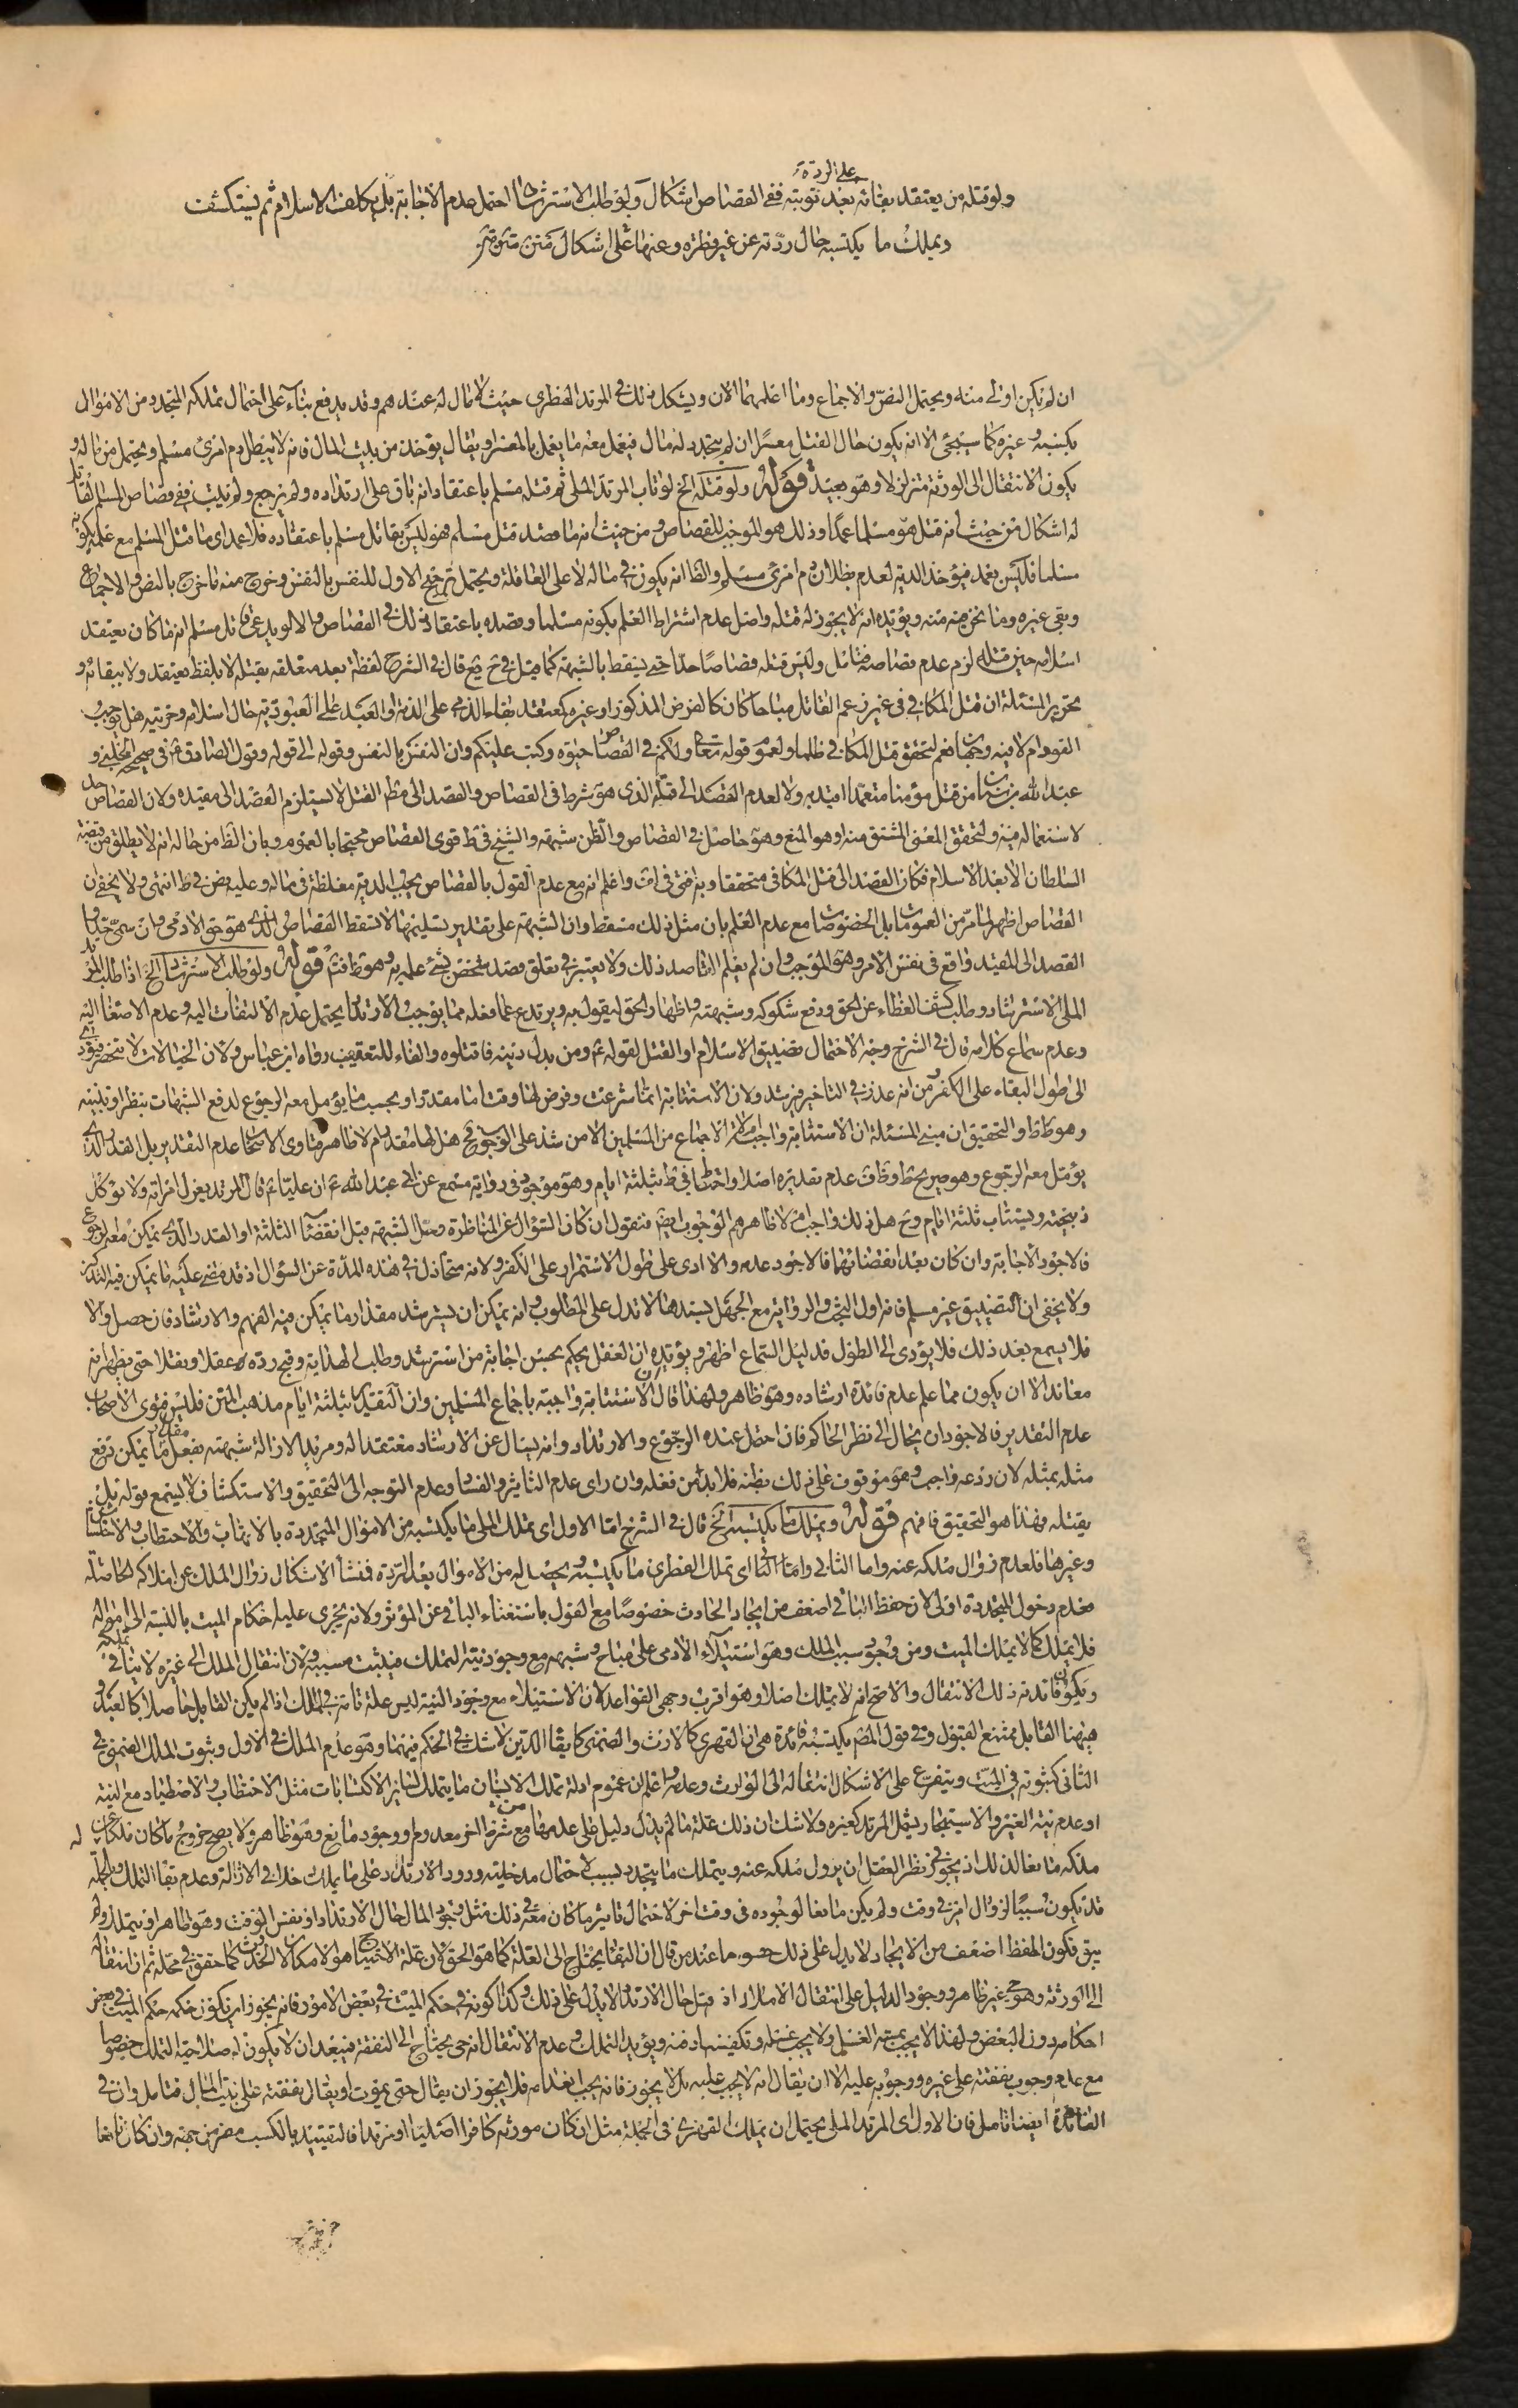 على الردة
ولو قتله من يعتقد بقائه بعد توبته ففى القصاص اشكال ولو طلب الاسترشاد احتمل عدم الاجابة بل يكلف الاسلام ثم يستكشف
ويملك ما يكتسبه حال ردّته عن غير فطرة وعنها على اشكال
ان لم يكن اولى منه ويحتمل النصّ والاجماع وما اعلمهما الان ويشكل ذلك فى المرتد الفطرى حيث لا مال له عندهم وقد يدفع بناء على احتمال تملكه المتجدد من الاموال
بكسبه وغيره كما سيجئ الا انه يكون حال القتل معسرًا ان لم يتجدد له مال فيعمل معه ما يعمل بالمعسر او يقال يؤخذ من بيت المال فانه لا يبطل دم امرئ مسلم ويحتمل من ماله و
يكون الانتقال الى الورثة متزلزلا وهو بعيد قوله ولو قتله الخ لو تاب المرتد الملى ثم قتله مسلم باعتقاد انه باق على ارتداده ولم يرجع ولم يتب ففى قصاص المسلم القاتل
له اشكال من حيث انه قتل هو مسلما عمدًا وذلك هو الموجب للقصاص ومن حيث انه ما قصد قتل مسلم فهو ليس بقاتل مسلم باعتقاده فلا عمد اى ما قتل المسلم مع علمه بكونه
مسلما فليس بعمد فيؤخذ الدية لعدم بطلان دم امرئ مسلم والظاانه يكون فى ماله لا على العاقلة ويحتمل ترجيح الاول للنفس بالنفس وخرج منه ما خرج بالنص والاجماع
وبقى غيره وما نحن فيه منه ويؤيده انه لا يجوز له قتله واصل عدم اشتراط العلم بكونه مسلما وقصده باعتقاد ذلك فى القصاص والا لو يدعى قاتل مسلم انه ما كان يعتقد
اسلامه حين قتله لزم عدم قصاصه فتامل وليس قتله قصاصًا حدّا حتى يسقط بالشبهة كما قيل فى ح يع قال فى الشرح لفظة بعد متعلقه بقتله لا بلفظ يعتقد ولا ببقائه و
تحرير المسئلة ان قتل المكافى فى غير زعم القاتل مباحا كان كالفرض المذكور او غيره كمعتقد بقاء الذمى على الذمة او العبد على العبودية حال اسلامه وحريته هل يوجب
القود ام لا فيه وجهان نعم لتحقق قتل المكافى ظلما ولعموم قوله تعالى ولكم فى القصاص حيوة وكتب عليكم وان النفس بالنفس وقوله الى قوله وقول الصادق ع فى صحيحة الحلبى و
عبد الله بن سنان من قتل مؤمنا متعمدا اقيد به ولا لعدم القصد الى قتله الذى هو شرط فى القصاص والقصد الى مطلق القتل لا يستلزم القصد الى مقيده ولان القصاص حد
لاستعماله فيه ولتحقق المعنى المشتق منه وهو المنع وهو حاصل فى القصاص والظن شبهة والشيخ فى ط قوى القصاص محتجا بالعموم وبان الظ من حاله انه لا يطلق من قبضة
السلطان الا بعد الاسلام فكان القصد الى قتل المكافى متحققا وبه افتى فى ف واعلم انه مع عدم القول بالقصاص يجب الدية مغلظة فى ماله وعليه نص فى ط انتهى ولا يخفى ان
القصاص اظهر لما مرّ من العمومات بل الخصوصات مع عدم العلم بان مثل ذلك مسقط وان الشبهة على تقدير تسليمها لا تسقط القصاص الذى هو حق الادمى وان سمّى حدا و
القصد الى المقيد واقع فى نفس الامر وهو الموجب وان لم يعلم القاصد ذلك ولا يعتبر فى تعلق قصد شخص بشئ علمه به وهو ظ فت قوله ولو طلب الاسترشاد الخ اذا طلب المرتد
الملى الاسترشاد وطلب كشف الغطاء عن الحق ودفع شكوكه وشبهته واظهار الحق ليقول به ويرتدع عما فعله مما يوجب الارتداد يحتمل عدم الالتفات اليه وعدم الاصغاء اليه
وعدم سماع كلامه قال فى الشرح وجه الاحتمال تضييق الاسلام او القتل لقوله ع ومن بدل دينه فاقتلوه والفاء للتعقيب رواه ابن عباس ولان الخيالات لا تنحصر فيؤدى
الى طول البقاء على الكفر ومن انه عذر فى التاخير فيرشد ولان الاستتابة انما شرعت وفرض لها وقت اما مقدرا او بحسب ما يؤمل معه الرجوع لدفع الشبهات بنظر او تنبيه
وهو ظ والتحقيق ان مبنى المسئلة ان الاستتابة واجبة ام لا الاجماع من المسلمين الا من شذ على الوجوب ثم هل لها مقدر ام لا ظاهر فتاوى الاصحاب عدم التقدير بل القدر الذى
يؤمل معه الرجوع وهو صريح ط وظ ف عدم تقديره اصلا واحتاط فى ط بثلثة ايام وهو موجود فى رواية مسمع عن ابى عبد الله ع ان عليا ع قال المرتد يعزل امراته ولا تؤكل
ذبيحته ويستتاب ثلثة ايام وح هل ذلك واجب ام لا ظاهرهم الوجوب ايضا فنقول ان كان السؤال عن المناظرة وحل الشبهة قبل انقضاء الثلثة او القدر الذى يمكن معه الرجوع
فالاجود الاجابة وان كان بعد انقضائها فالاجود عدمه والا ادى على طول الاستمرار على الكفر ولانه متخاذل فى هذه المدّة عن السؤال اذ قد مضى عليه ما يمكن فيه التذكر
ولا يخفى ان التضييق غير مسلم فانه اول البحث والرواية مع الجهل بسندها لا تدل على المطلوب وانه يمكن ان يسترشد مقدار ما يمكن فيه الفهم والارشاد فان حصل والا
فلا يسمع بعد ذلك فلا يؤدى الى الطول فدليل السماع اظهر ويؤيده ان العقل يحكم بحسن اجابة من استرشد وطلب الهداية وقبح رده عقلا ونقلا حتى يظهر انه
معاند الا ان يكون مما علم عدم فائدة ارشاده وهو ظاهر ولهذا قال الاستتابة واجبة باجماع المسلمين وان التقييد بثلثة ايام مذهب المتن فليس فتوى الاصحاب
عدم التقدير فالاجود ان يحال الى نظر الحاكم فان احتمل عنده الرجوع والارتداد وانه يسال عن الارشاد معتمدا له ومريدا لازالة شبهته بفعل ما يمكن رفع
مثله بمثله لان ردعه واجب وهو موقوف على ذلك بظنه فلا بد من فعله وان راى عدم التاثير والفساد وعدم التوجه الى التحقيق والاستكشاف لا يسمع قوله بل
يقتله فهذا هو التحقيق فافهم قوله ويملك ما يكتسبه الخ قال فى الشرح امّا الاول اى تملك الملى ما يكتسبه من الاموال المتجددة بالاتهاب والاحتطاب والاحتشاش
وغيرها فلعدم زوال ملكه عنه واما الثانى اى تملك الفطرى ما يكتسبه يحصل له من الاموال بعد الردة فمنشأ الاشكال زوال الملك عن املاكه الحاصلة
فعدم دخول المتجددة اولى لان حفظ الباقى اضعف من ايجاد الحادث خصوصًا مع القول باستغناء الباقى عن المؤثر ولانه يجرى عليه احكام الميت بالنسبة الى امواله
فلا يملك كما لا يملك الميت ومن وجود سبب الملك وهو استيلاء الادمى على مباح وشبهه مع وجود نية التملك فيثبت مسببه ولان انتقال الملك الى غيره لا ينافى تملكه
ويكون فائدته ذلك الانتقال والاصح انه لا يملك اصلا وهو اقرب وجهى القواعد لان الاستيلاء مع وجود النية ليس علة تامة فى الملك اذا لم يكن القابل حاصلا كالعبد و
فيهنا القابل ممتنع القبول وفى قول المصنف يكتسبه فائدة هى ان القهرى كالارث والضمنى كابقاء الدين لا شك فى الحكم فيهما وهو عدم الملك فى الاول وثبوت الملك الضمنى فى
الثانى كثبوته فى الميت ويتفرع على الاشكال انتقاله الى الوارث وعدمه واعلم ان عموم ادلة تملك الانسان ما يتملك لسائر الاكتسابات مثل الاحتطاب والاصطياد مع النية
او عدم نية الغير والاستيجار يشمل المرتد كغيره ولا شك ان ذلك علة ما لم يدل دليل على عدمها مع شرط اخر معدوم او وجود مانع وهو ظاهر ولا يصح خروج ما كان ملكا له عن
ملكه مانعا لذلك اذ يجوز فى نظر العقل ان يزول ملكه عنه ويتملك ما يتجدد بسبب لاحتمال مدخلية ورود الارتداد على ما يملك حدا فى الازالة وعدم بقاء التملك وبالجملة
قد يكون سببًا لزوال امر فى وقت ولم يكن مانعا لوجوده فى وقت اخر لاحتمال تاثير ما كان معه فى ذلك مثل وجود المال حال الارتداد او نفس الوقت وهو ظاهر او يتملك ولم
يبق فكون الحفظ اضعف من الايجاد لا يدل على ذلك عند من قال ان البقاء يحتاج الى العلة كما هو الحق لان علة الاحتياج هو الامكان لا الحدوث كما حقق فى محله ثم ان انتقاله
الى الورثة وهو حى غير ظاهر ووجود الدليل على انتقال الاملاك اذ قبل حال الارتداد لا يدل على ذلك وكذا كونه فى حكم الميت فى بعض الامور فانه يجوز ان يكون حكمه حكم الميت فى بعض
احكامه دون البعض ولهذا لا يجب بمسه الغسل ولا يجب غسله وتكفينه ودفنه ويؤيد التملك وعدم الانتقال انه حى يحتاج الى النفقة فيبعد ان لا يكون له صلاحية التملك خصوصا
مع عدم وجوب نفقته على غيره ووجوبه عليه الا ان يقال انه لا يجب عليه بل لا يجوز فانه يجب اعدامه فلا يجوز ان يقال حتى يموت او يقال نفقته على بيت المال فتامل وان فى
الفائدة ايضا تامل فان الاول اى المرتد الملى يحتمل ان يملك القهرى فى الجملة مثل ان كان مورثه كافرا اصليا او مرتدا فالتقييد بالكسب مضر من جهة وان كان نافعا